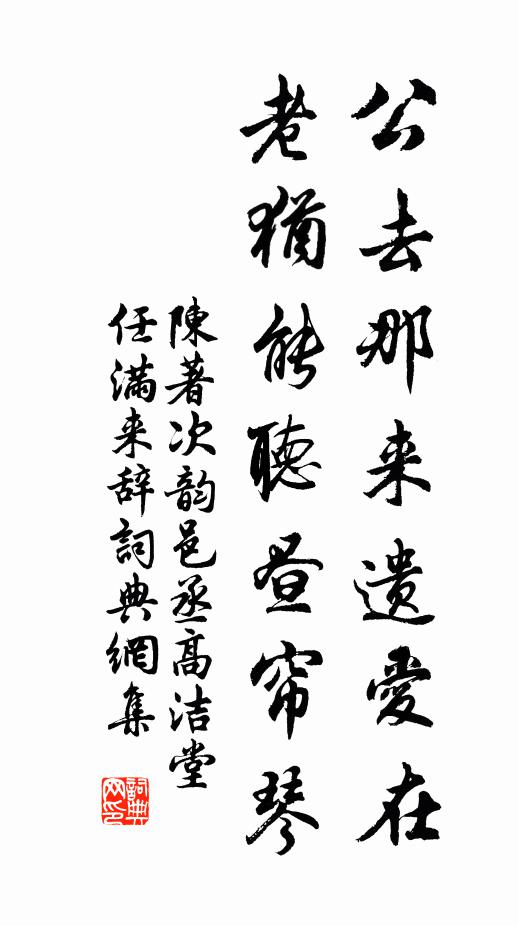 公去那来遗愛在
老猶能聽昼帘琴
陳著次韵邑丞高洁堂
任滿来辞詞典網集
詞典网印